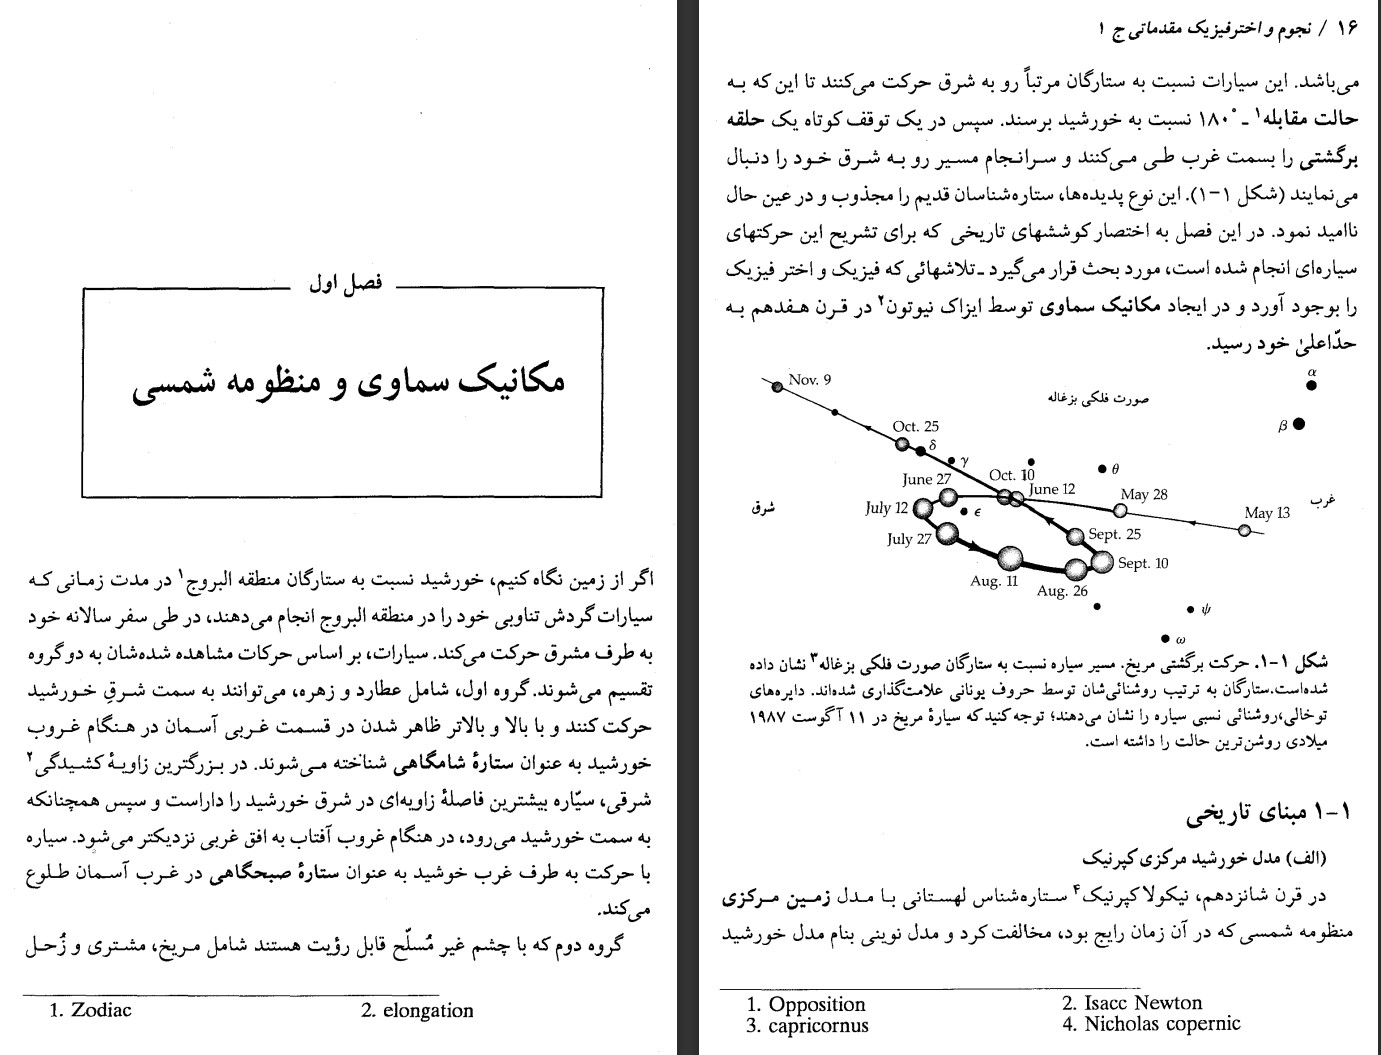 فصل اول
مکانیک سماوی و منظومه شمسی
اگر از زمین نگاه کنیم، خورشید نسبت به ستارگان منطقه البروج۱ در مدت زمانی که
سیارات گردش تناوبی خود را در منطقه البروج انجام می‌دهند، در طی سفر سالانه خود
به طرف مشرق حرکت می‌کند. سیارات، بر اساس حرکات مشاهده شده‌شان به دو گروه
تقسیم می‌شوند. گروه اول، شامل عطارد و زهره، می‌توانند به سمت شرقِ خورشید
حرکت کنند و با بالا و بالاتر ظاهر شدن در قسمت غربی آسمان در هنگام غروب
خورشید به عنوان ستارهٔ شامگاهی شناخته می‌شوند. در بزرگترین زاویهٔ کشیدگی۲
شرقی، سیّاره بیشترین فاصلهٔ زاویه‌ای در شرق خورشید را داراست و سپس همچنانکه
به سمت خورشید می‌رود، در هنگام غروب آفتاب به افق غربی نزدیکتر می‌شود. سیاره
با حرکت به طرف غرب خوشید به عنوان ستارهٔ صبحگاهی در غرب آسمان طلوع
می‌کند.
گروه دوم که با چشم غیر مُسلّح قابل رؤیت هستند شامل مریخ، مشتری و زُحل
1. Zodiac 2. elongation
۱۶ / نجوم و اخترفیزیک مقدماتی ج ۱
می‌باشد. این سیارات نسبت به ستارگان مرتباً رو به شرق حرکت می‌کنند تا این که به
حالت مقابله۱ ـ ۱۸۰° نسبت به خورشید برسند. سپس در یک توقف کوتاه یک حلقه
برگشتی را بسمت غرب طی می‌کنند و سرانجام مسیر رو به شرق خود را دنبال
می‌نمایند (شکل ۱-۱). این نوع پدیده‌ها، ستاره‌شناسان قدیم را مجذوب و در عین حال
ناامید نمود. در این فصل به اختصار کوششهای تاریخی که برای تشریح این حرکتهای
سیاره‌ای انجام شده است، مورد بحث قرار می‌گیرد ـ تلاشهائی که فیزیک و اختر فیزیک
را بوجود آورد و در ایجاد مکانیک سماوی توسط ایزاک نیوتون۲ در قرن هفدهم به
حدّاعلیٰ خود رسید.
α
Nov. 9
صورت فلکی بزغاله
β
Oct. 25
δ
γ
θ
June 27
Oct. 10
June 12
May 28
غرب
شرق
July 12
ϵ
May 13
July 27
Sept. 25
Sept. 10
Aug. 11
Aug. 26
ψ
ω
شکل ۱-۱. حرکت برگشتی مریخ. مسیر سیاره نسبت به ستارگان صورت فلکی بزغاله۳ نشان داده
شده‌است.ستارگان به ترتیب روشنائی‌شان توسط حروف یونانی علامت‌گذاری شده‌اند. دایره‌های
توخالی،روشنائی نسبی سیاره را نشان می‌دهند؛ توجه کنید که سیارهٔ مریخ در ۱۱ آگوست ۱۹۸۷
میلادی روشن‌ترین حالت را داشته است.
۱-۱ مبنای تاریخی
(الف) مدل خورشید مرکزی کپرنیک
در قرن شانزدهم، نیکولا کپرنیک۴ ستاره‌شناس لهستانی با مدل زمین مرکزی
منظومه شمسی که در آن زمان رایج بود، مخالفت کرد و مدل نوینی بنام مدل خورشید
1. Opposition 2. Isacc Newton
3. capricornus 4. Nicholas copernic